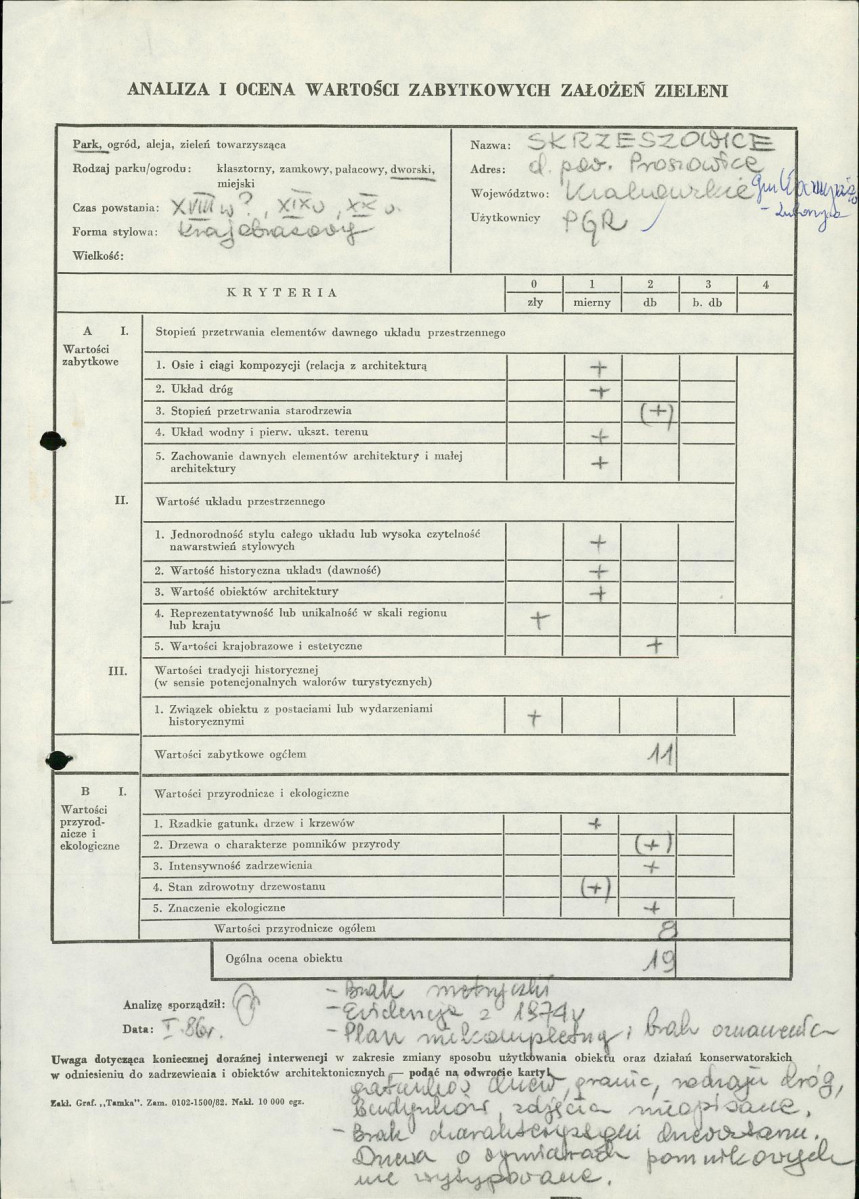 ANALIZA I OCENA WARTOŚCI ZABYTKOWYCH ZAŁOŻEŃ ZIELENI
Park, ogród, aleja, zieleń towarzysząca
Rodzaj parku/ogrodu: klasztorny, zamkowy, pałacowy, dworski,
miejski
Czas powstania: XVIII w?, XIX w, XX w.
Forma stylowa: Krajobrazowy
Wielkość:
Nazwa: SKRZESZOWICE
Adres: d. pow. Proszowice
Województwo: Krakowskie
Użytkownicy PGR
KRYTERIA 0 1 2 3 4
zły mierny db b. db
A I. Stopień przetrwania elementów dawnego układu przestrzennego
Wartości
zabytkowe
1. Osie i ciągi kompozycji (relacja z architekturą +
2. Układ dróg +
3. Stopień przetrwania starodrzewia (+)
4. Układ wodny i pierw. ukszt. terenu +
5. Zachowanie dawnych elementów architektury i małej
architektury +
II. Wartość układu przestrzennego
1. Jednorodność stylu całego układu lub wysoka czytelność
nawarstwień stylowych +
2. Wartość historyczna układu (dawność) +
3. Wartość obiektów architektury +
4. Reprezentatywność lub unikalność w skali regionu
lub kraju +
5. Wartości krajobrazowe i estetyczne +
III. Wartości tradycji historycznej
(w sensie potencjonalnych walorów turystycznych)
1. Związek obiektu z postaciami lub wydarzeniami
historycznymi +
Wartości zabytkowe ogółem 11
B I. Wartości przyrodnicze i ekologiczne
Wartości
przyrod-
nicze i
ekologiczne
1. Rzadkie gatunki drzew i krzewów +
2. Drzewa o charakterze pomników przyrody (+)
3. Intensywność zadrzewienia +
4. Stan zdrowotny drzewostanu (+)
5. Znaczenie ekologiczne +
Wartości przyrodnicze ogółem 8
Ogólna ocena obiektu 19
Analizę sporządził:
Data: I. 86r.
- Brak metryczki
- Ewidencja z 1974r
- Plan niekompletny, brak oznaczenia
Uwaga dotycząca koniecznej doraźnej interwencji w zakresie zmiany sposobu użytkowania obiektu oraz działań konserwatorskich
w odniesieniu do zadrzewienia i obiektów architektonicznych — podać na odwrocie karty
gatunków drzew, granic, rodzaju dróg,
budynków, zdjęcia nieopisane.
- Brak charakterystyki drzewostanu.
Drzewa o wymiarach pomnikowych
nie wytypowane.
Zakł. Graf. „Tamka". Zam. 0102-1500/82. Nakł. 10 000 egz.